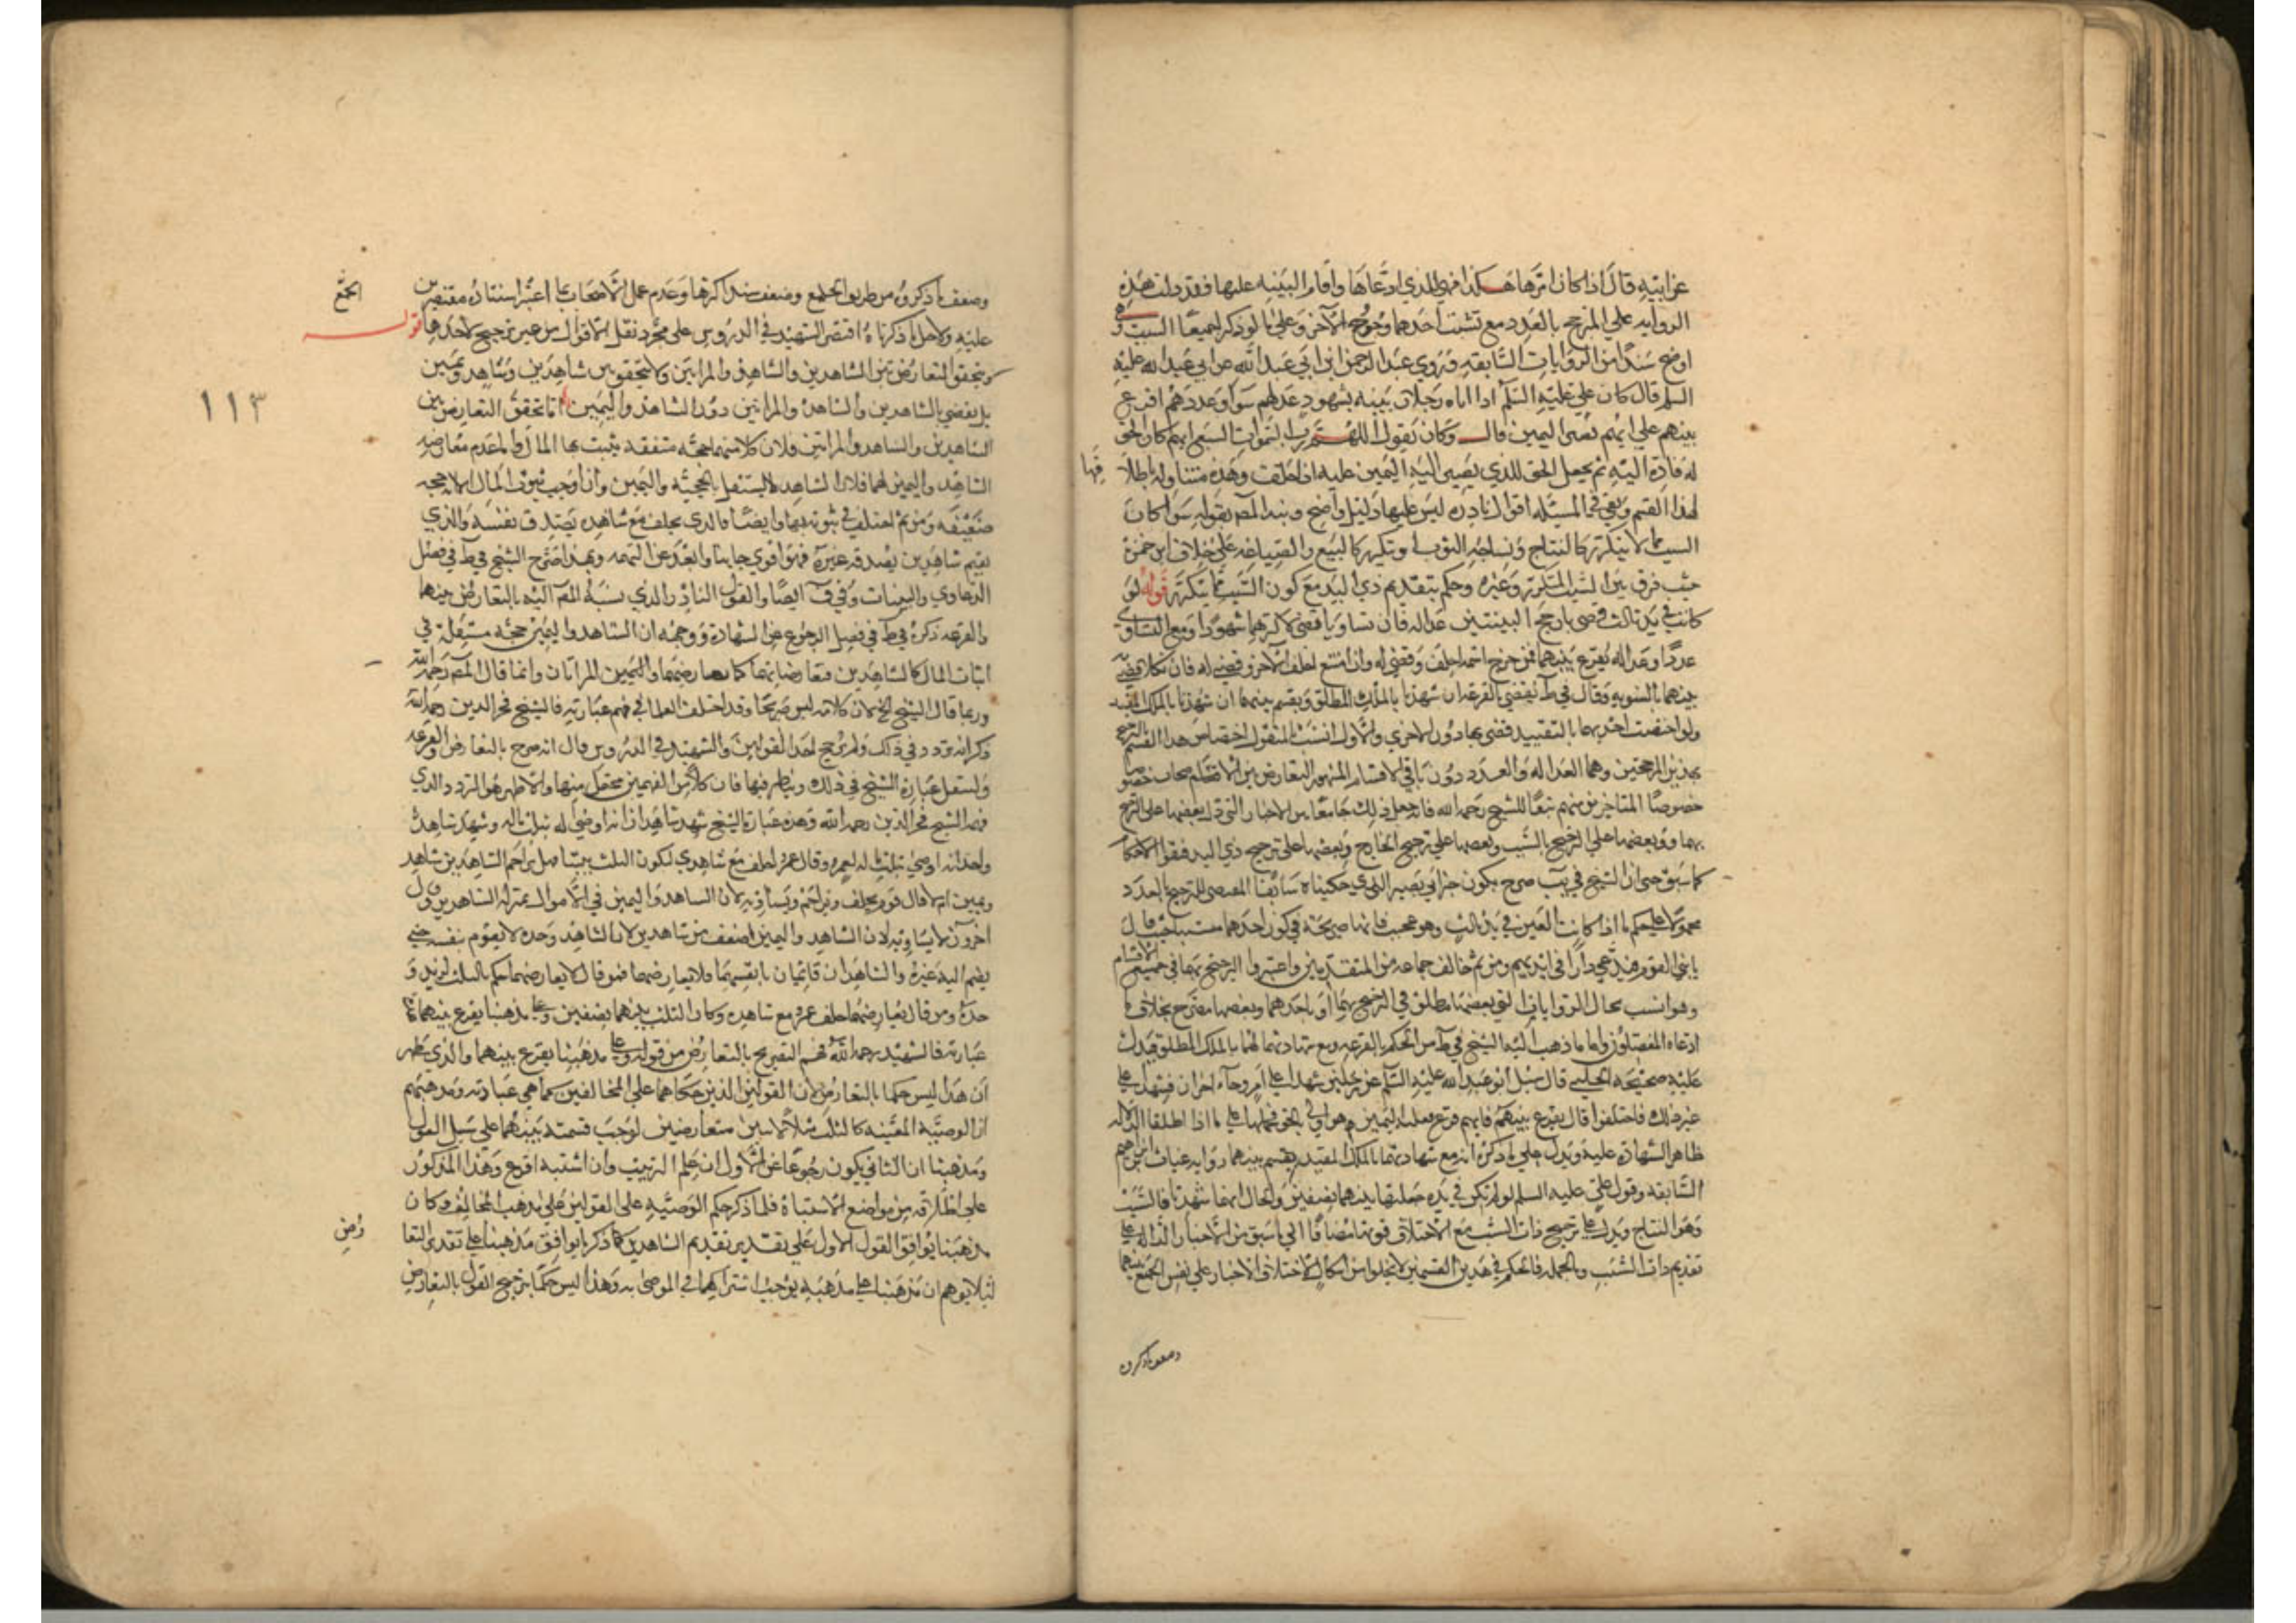 عن ابيه قال اذا كان امرها هكذا فهي للذي ادعاها واقام البينه عليها فقد دلت هذه
الروايه علي المرجح بالعدد مع تشبث احدهما وخروج الآخر وعلي ما لو ذكرا جميعا السبب وهي
اوضح سندا من الروايات السابقه وروي عبد الرحمن ابن ابي عبد الله عن ابي عبد الله عليه
السلم قال كان علي عليه السلم اذا اتاه رجلان ببينه شهود عدلهم سوا وعددهم اقرع
بينهم علي ايهم تصير اليمين قال وكان يقول اللهم رب السموات السبع ايهم كان الحق
له فاده اليه ثم يجعل الحق للذي يصير اليه اليمين عليه اذا حلف وهذه متناوله باطلا
فها
لهذا القسم وبقي في المسئله اقوال نادره ليس عليها دليل واضح ونبه المصـ بقوله سوا كان
السبب مما لا يتكرر كالنتاج ونساجه الثوب او يتكرر كالبيع والصياغه علي خلاف ابن حمزة
حيث فرق بين السبب المتكرر وغيره وحكم بتقديم ذي اليد مع كون السبب مما يتكرر قوله لو
كانت في يد ثالث قضي بارجح البينتين عداله فان تساويا قضي لاكثرهما شهودا ومع التساوي
عددا وعداله يقرع بينهما فمن خرج اسمه احلف وقضي له وان امتنع احلف الآخر وقضي له فان نكلا قضي به
بينهما بالسويه وقال في ط يقضي بالقرعه ان شهدتا بالملك المطلق ويقسم بينهما ان شهدتا بالملك المقيد
ولو اختصت احديهما بالتقييد قضي بها دون الاخري والاول انسب المنقول اختصاص هذا القسم بالترجيح
بهذين المرجحين وهما العداله والعدد دون باقي الاقسام المشهور
خصوصا المتاخرين منهم تبعا للشيخ رحمه الله فانه جعل ذلك جامعا بين الاخبار التي دل بعضها علي الترجيح
بهما وبعضها علي الترجيح بالسبب وبعضها علي ترجيح الخارج وبعضها علي ترجيح ذي اليد
كما سبق حتي ان الشيخ في يب صرح بكون خبر ابي بصير الذي حكيناه سابقا المقتضي للترجيح بالعدد
محمولا علي حكم ما اذا كانت العين في يد ثالث وهو عجيب فانها صريحة في كون احدهما متشبثا حيث قال
ياتي القوم فيدعي دارا في ايديهم ومن ثم خالف جماعه من المتقدمين واعتبروا الترجيح بهما في جميع الاقسام
وهو انسب بحال الروايات التي بعضها مطلق في الترجيح بهما او باحدهما وبعضها مصرح بخلاف ما
ادعاه المفصلون واما ما ذهب اليه الشيخ في ط من الحكم بالقرعه مع شهادتهما لهما بالملك المطلق فيدل
عليه صحيحه الحلبي قال سئل ابو عبد الله عليه السلم عن رجلين شهدا علي امر وجاء اخران فشهدا علي
غير ذلك فاختلفوا قال يقرع بينهم فايهم قرع فعليه اليمين وهو اولي بالحق
ظاهر الشهادة عليه ويدل علي ما ذكره انه مع شهادتهما بالملك المقيد يقسم بينهما روايه غياث ابن ابراهيم
السابقه وقول علي عليه السلم لو لم تكن في يده جعلتها بينهما نصفين والحال انهما شهدتا بالسبب
وهو النتاج ويدل علي ترجيح ذات السبب مع الاختلاف قوتها مضافا الي ما سبق من الاخبار الداله علي
تقديم ذات السبب وبالجمله فالحكم في هذين القسمين لا يخلو من اشكال لاختلاف الاخبار علي نفس الجمع بينهما
وضعف ما ذكروه
وضعف ما ذكروه من طريق الجمع وضعف سند اكثرها وعدم عمل الاصحاب بما اعتبر اسناده مقتصرين
الجمع
عليه ولاجل ما ذكرناه اقتصر الشهيد في الدروس علي مجرد نقل الاقوال من غير ترجيح لاحدها قوله
ويتحقق التعارض بين الشاهدين والشاهد والمراتين ولا يتحقق بين شاهدين وشاهد ويمين
بل يقضي بالشاهدين والشاهد والمراتين دون الشاهد واليمين اما تحقق التعارض بين
الشاهدين والشاهد والمراتين فلان كلا منهما حجه متفقه يثبت بها المال واما عدم معارضه
الشاهد واليمين لهما فلان الشاهد لا يستقل بالحجيه واليمين وان اوجب ثبوت المال الا انه حجه
ضعيفه ومن ثم اختلف في ثبوته بهما وايضا فالذي يحلف مع شاهده يصدق نفسه والذي
يقيم شاهدين يصدقه غيره فهو اقوي جانبا وابعد عن التهمه وبهذا صرح الشيخ في ط في فصل
الدعاوي والبينات وفي ف ايضا والقول النادر الذي نسبه المصـ اليه بالتعارض بينهما
والقرعه ذكره في ط في فصل الرجوع عن الشهادة ووجهه ان الشاهد واليمين حجه مستقله في
اثبات المال كالشاهدين فتعارضا بهما كما يعارضهما واليمين المراتان وانما قال المصـ رحمه الله
وربما قال الشيخ الخ لان كلامه ليس صريحا وقد اختلف العلما في فهم عبارته فالشيخ فخر الدين رحمه الله
ذكر انه تردد في ذلك ولم يرجح احد القولين والشهيد في الدروس قال انه صرح بالتعارض والقرعه
ولننقل عبارة الشيخ في ذلك وينظر فيها فان كلا من الفهمين محتمل منها والاظهر هو التردد الذي
فهمه الشيخ فخر الدين رحمه الله وهذه عبارة الشيخ شهد شاهدان انه اوصي له بثلث ماله وشهد شاهد
واحد انه اوصي بثلث ماله لعمرو وقال عمرو احلف مع شاهدي ليكون الثلث بيننا هل يزاحم الشاهدين بشاهد
ويمين ام لا قال قوم يحلف ويزاحم ويساويه لان الشاهد واليمين في الاموال بمنزله الشاهدين وقال
اخرون لا يساويه لان الشاهد واليمين اضعف من شاهدين لان الشاهد وحده لا يقوم بنفسه حتي
يضم اليه غيره والشاهدان قائمان بانفسهما فلا يعارضهما فمن قال لا يعارضهما حكم بالثلث لزيد و
حده ومن قال يعارضهما حلف عمرو مع شاهده وكان الثلث بينهما نصفين وعلي مذهبنا يقرع بينهما هذا
عبارته فالشهيد رحمه الله فهم التصريح بالتعارض من قوله وعلي مذهبنا يقرع بينهما والذي يظهر
ان هذا ليس حكما بالتعارض لان القولين الذين حكاهما علي المخالفين كما هي عبادته ومذهبهم
ان الوصية المعينه كالثلث مثلا لاثنين متعارضين توجب قسمته بينهما علي سبيل العول
ومذهبنا ان الثاني يكون رجوعا عن الاول ان علم الترتيب وان اشتبه اقرع وهذا المذكور
علي اطلاقه من مواضع الاشتباه فلما ذكر حكم الوصيه علي القولين علي مذهب المخالف وكان
مذهبنا يوافق القول الاول علي تقدير تقديم الشاهدين كما ذكرنا يوافق مذهبنا علي تقدير التعا
رض
لئلا يتوهم ان مذهبنا علي مذهبه يوجب اشتراكهما في الموصي به وهذا ليس حكما بترجيح القول بالتعارض
١١٣